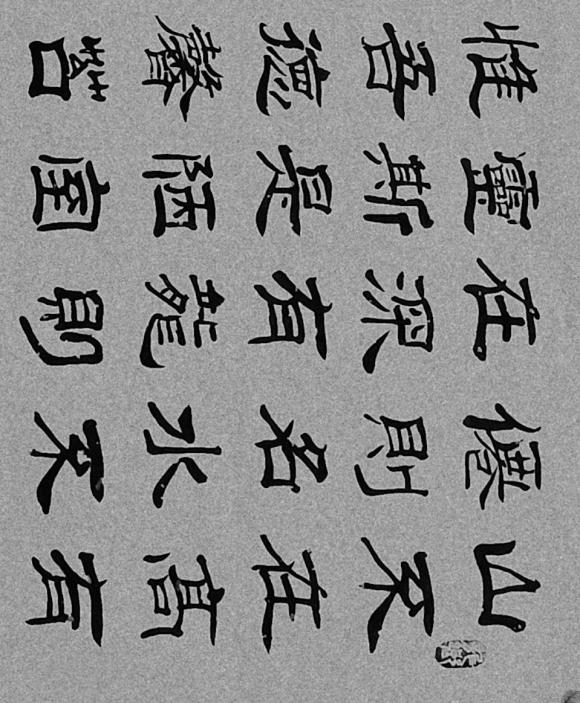 山不在高有
僊則名水不
在深有龍則
靈斯是陋室
惟吾德馨苔